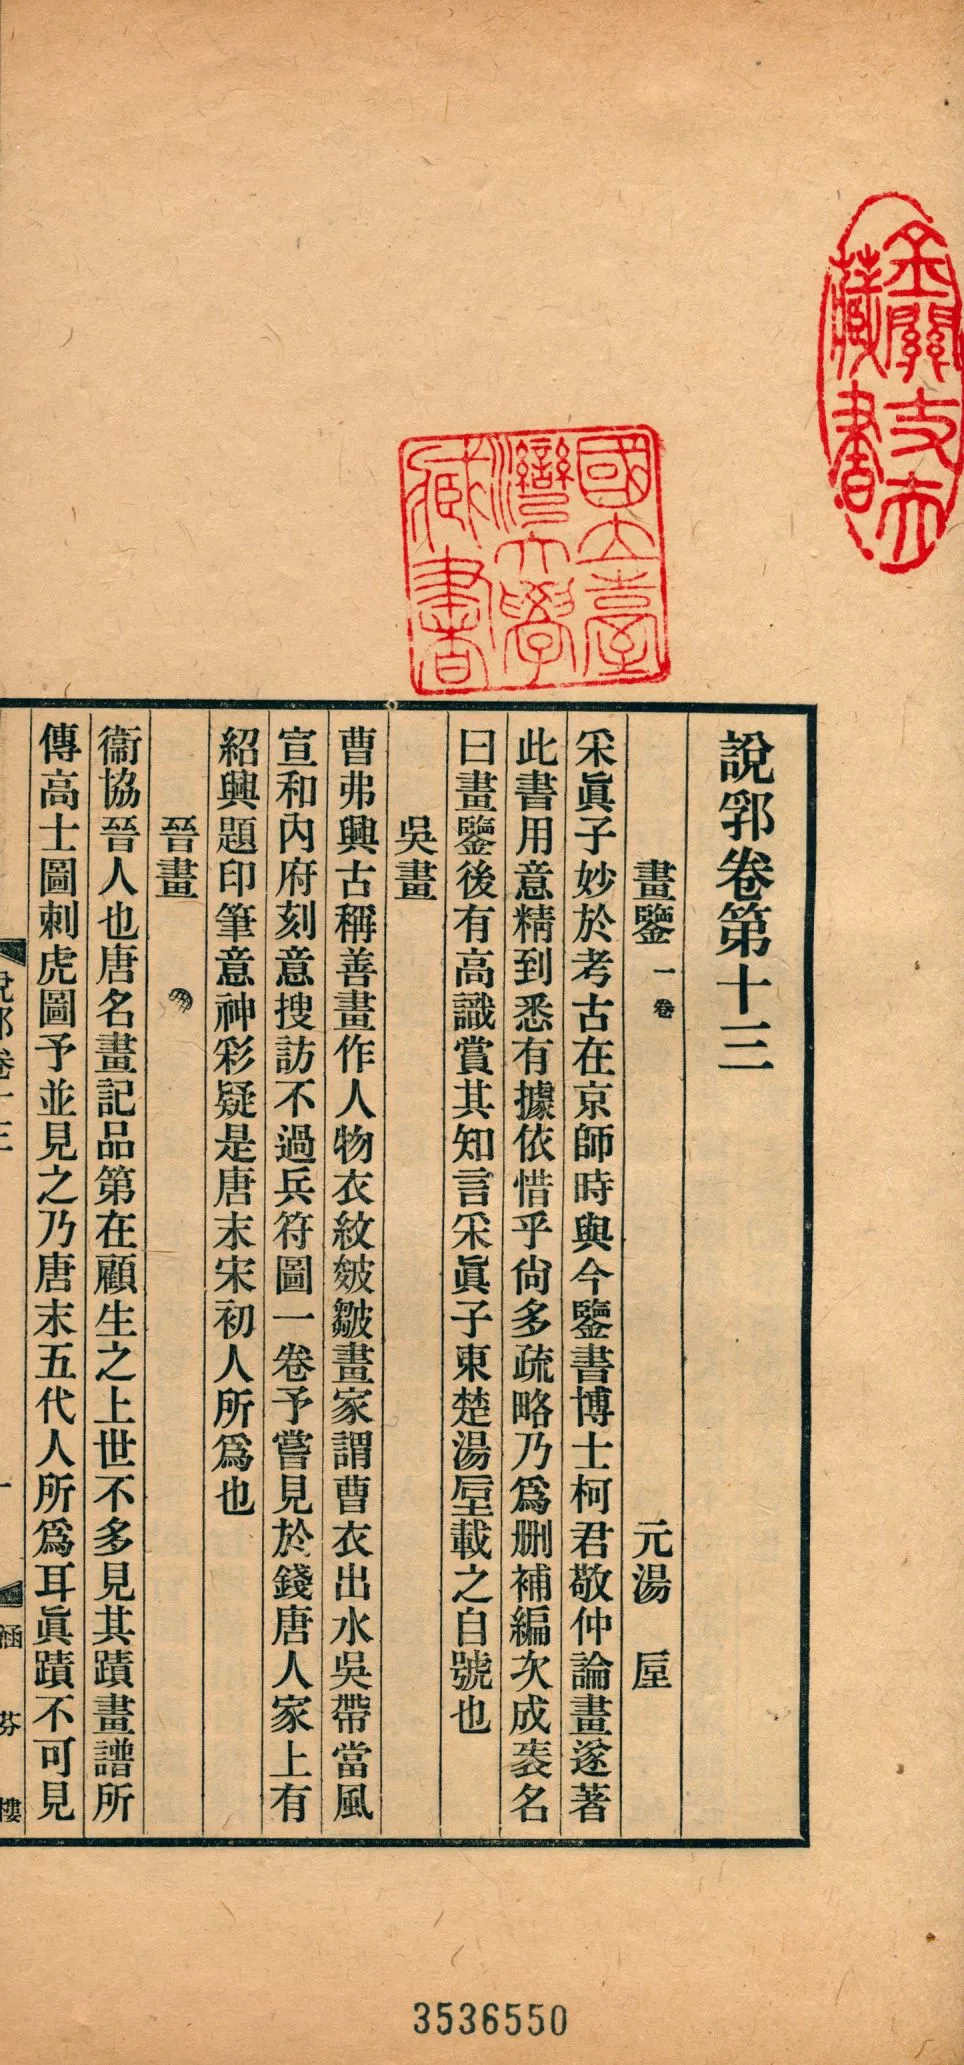 金關丈夫
藏書
國立臺
灣大學
藏書
說郛卷第十三
畫鑒 一卷 元湯 垕
采眞子妙於考古在京師時與今鑒書博士柯君敬仲論畫遂著
此書用意精到悉有據依惜乎尙多疏略乃爲删補編次成袠名
曰畫鑒後有高識賞其知言采眞子東楚湯垕載之自號也
吳畫
曹弗興古稱善畫作人物衣紋皴皺畫家謂曹衣出水吳帶當風
宣和內府刻意搜訪不過兵符圖一卷予嘗見於錢唐人家上有
紹興題印筆意神彩疑是唐末宋初人所爲也
晉畫
衞協晉人也唐名畫記品第在顧生之上世不多見其蹟畫譜所
傳高士圖刺虎圖予並見之乃唐末五代人所爲耳眞蹟不可見
說郛卷十三 一 涵芬樓
3536550